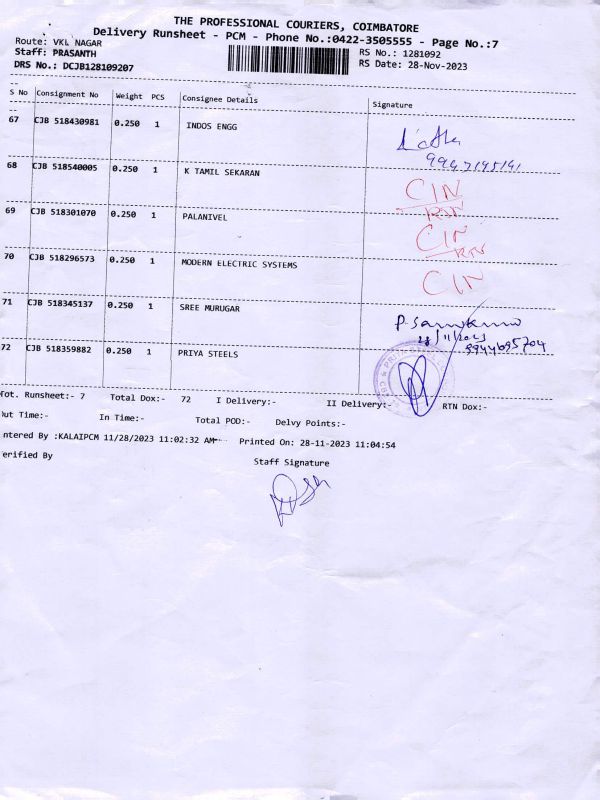 THE PROFESSIONAL COURIERS, COIMBATORE
Delivery Runsheet - PCM - Phone No.:0422-3505555 - Page No.:7
Route: VKL NAGAR RS No.: 1281092
Staff: PRASANTH RS Date: 28-Nov-2023
DRS No.: DCJB128109207
S No Consignment No Weight PCS Consignee Details Signature
67 CJB 518430981 0.250 1 INDOS ENGG
68 CJB 518540005 0.250 1 K TAMIL SEKARAN CIN
RTN
69 CJB 518301070 0.250 1 PALANIVEL CIN
RTN
70 CJB 518296573 0.250 1 MODERN ELECTRIC SYSTEMS CIN
71 CJB 518345137 0.250 1 SREE MURUGAR
28/11/2023
9944695704
72 CJB 518359882 0.250 1 PRIYA STEELS
Tot. Runsheet:- 7 Total Dox:- 72 I Delivery:- II Delivery:- RTN Dox:-
Out Time:- In Time:- Total POD:- Delvy Points:-
ntered By :KALAIPCM 11/28/2023 11:02:32 AM Printed On: 28-11-2023 11:04:54
erified By
Staff Signature